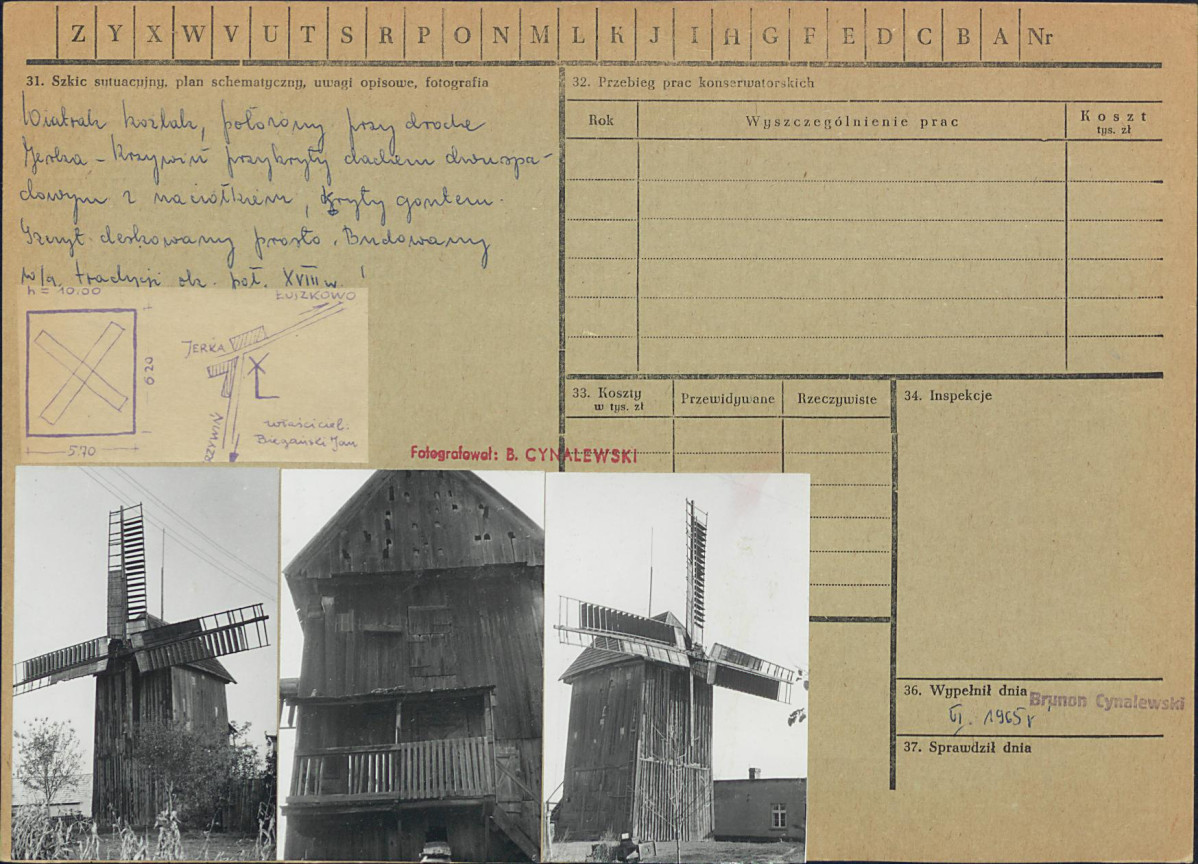 Z Y X W V U T S R P O N M L K J I H G F E D C B A Nr
31. Szkic sytuacyjny, plan schematyczny, uwagi opisowe, fotografia
Wiatrak koźlak, położony przy drodze
Jerka – Krzywiń przykryty dachem dwuspa-
dowym z naciółkiem, kryty gontem.
Szczyt deskowany prosto. Budowany
w/g. tradycji ok. poł. XVIII w.
h = 10.00
ŁUSZKOWO
JERKA
6.20
5.70
RZYWIŃ
właściciel:
Biegański Jan
Fotografował: B. CYNALEWSKI
32. Przebieg prac konserwatorskich
Rok
Wyszczególnienie prac
Koszt
tys. zł
33. Koszty
w tys. zł
Przewidywane
Rzeczywiste
34. Inspekcje
36. Wypełnił dnia
Brunon Cynalewski
VI. 1965 r
37. Sprawdził dnia